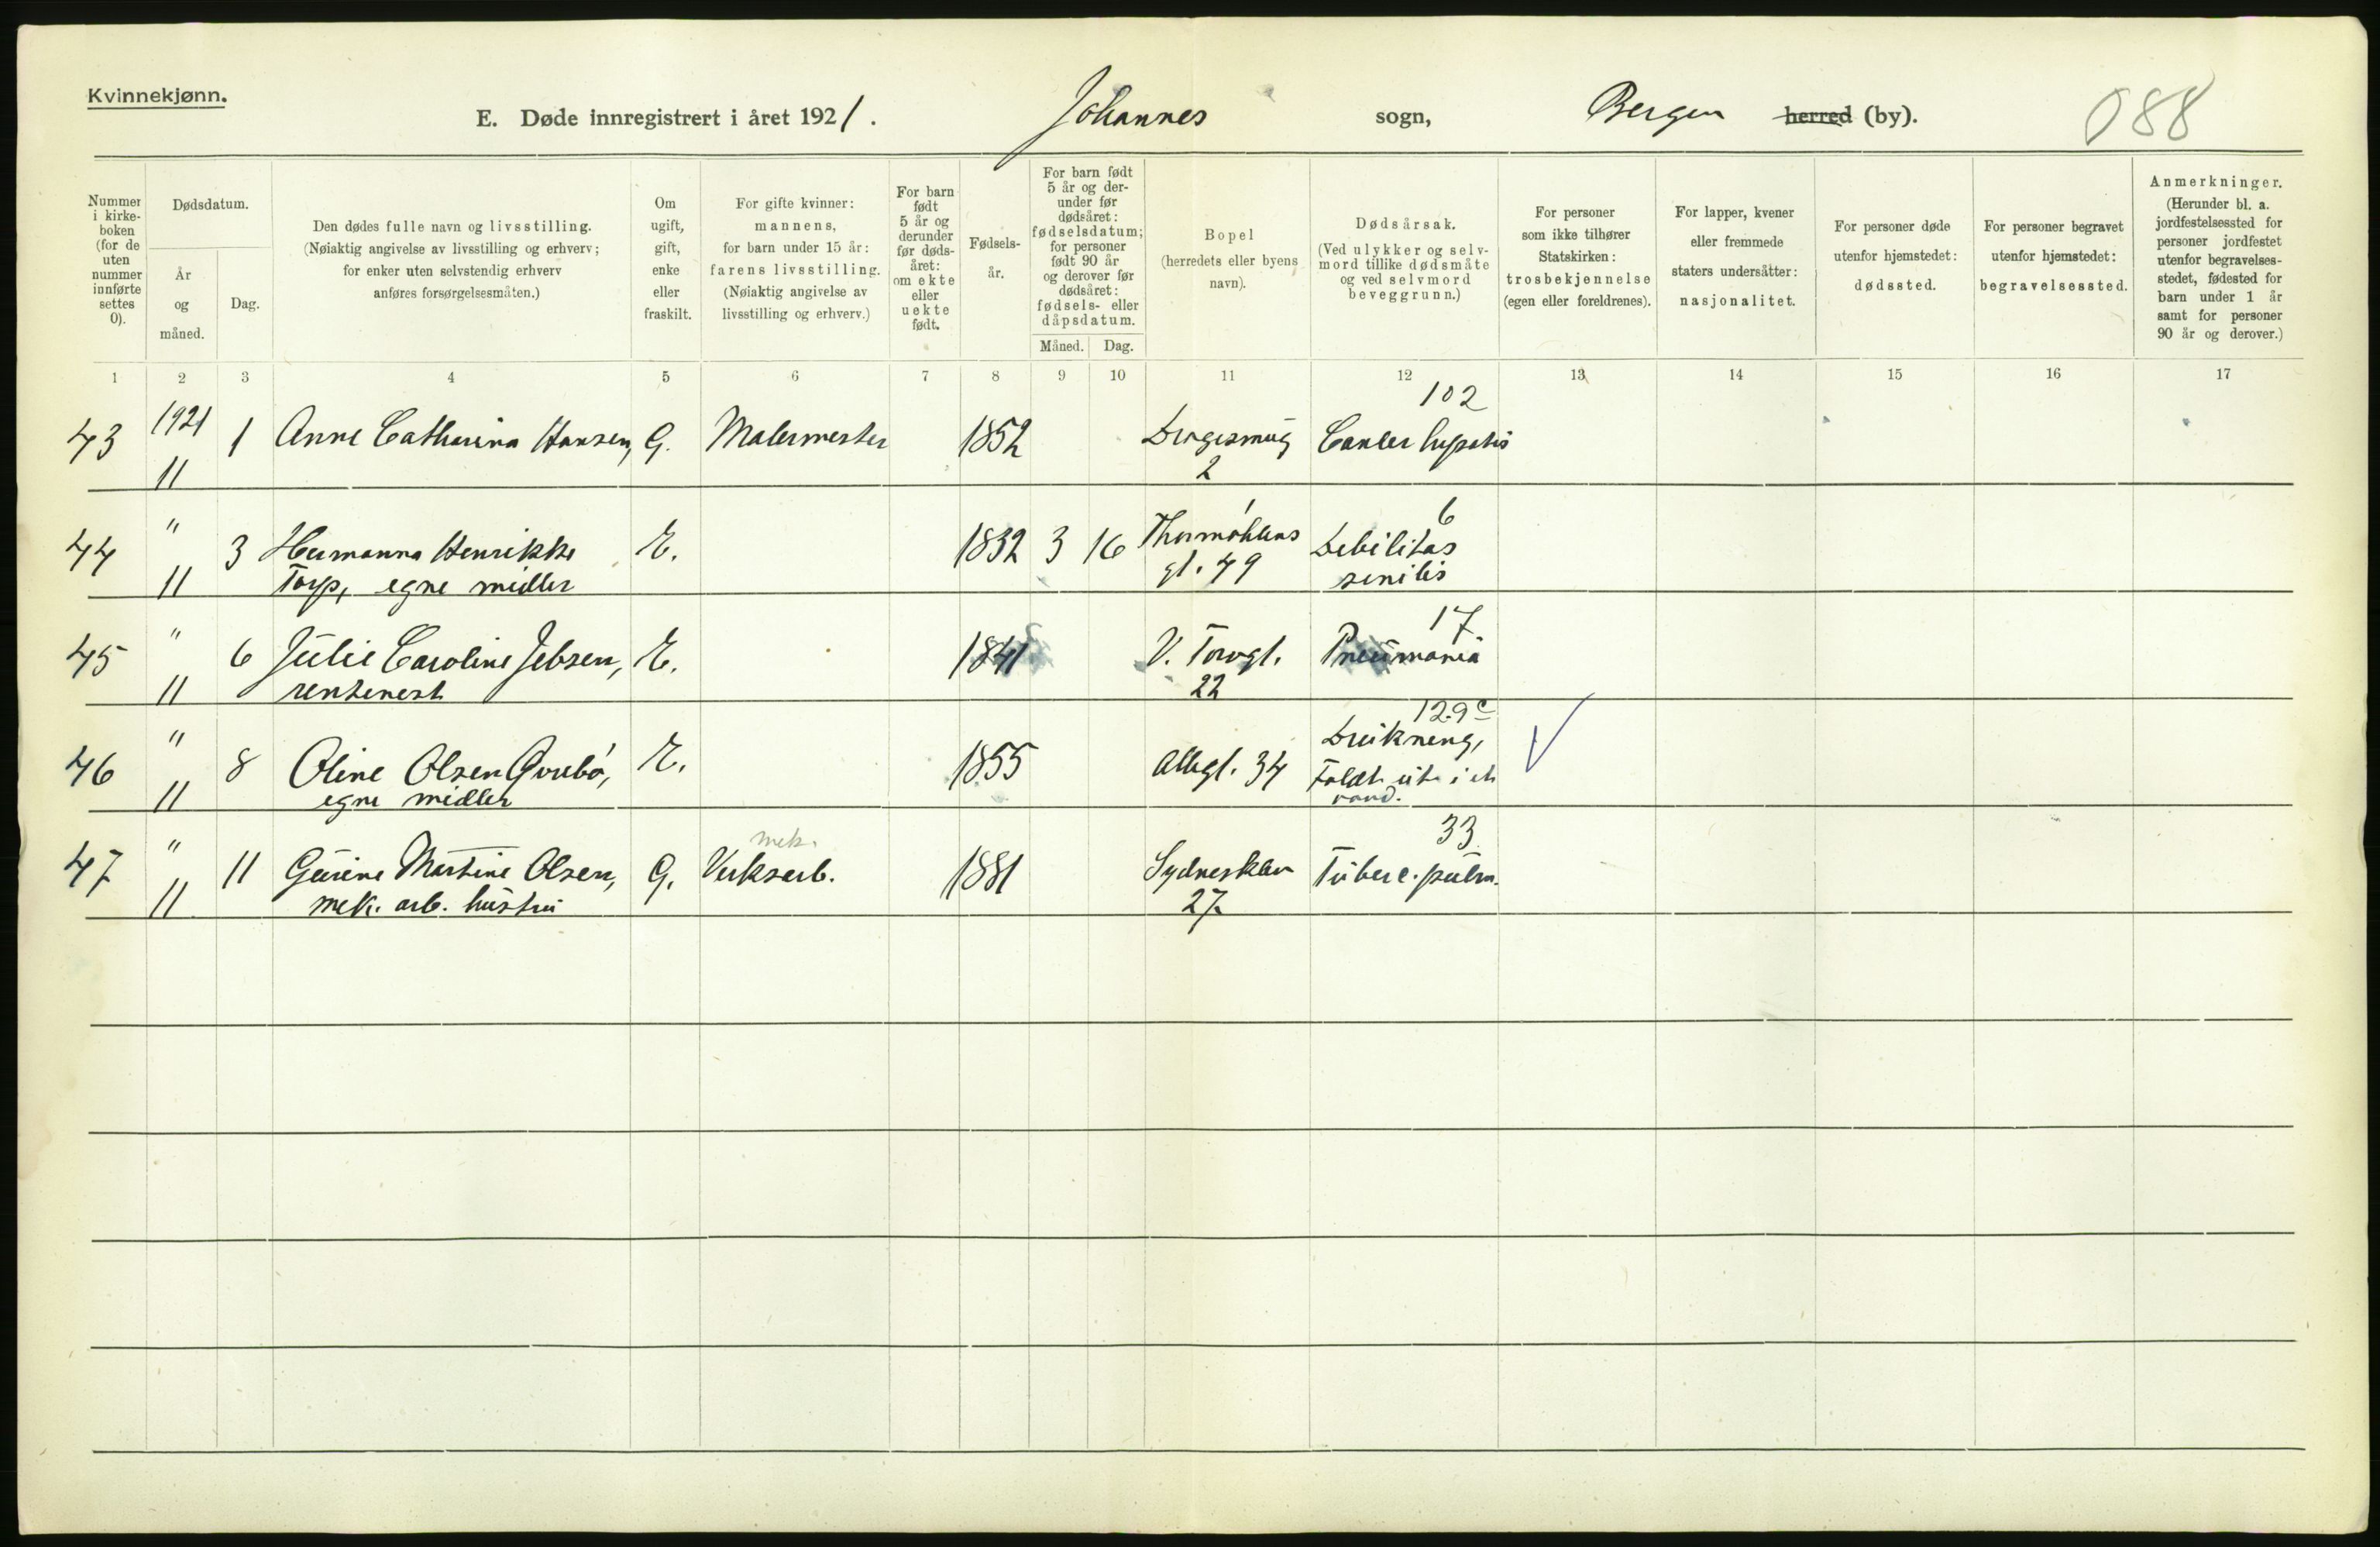 Kvinnekjønn.
E. Døde innregistrert i året 1921. Johannes sogn, Bergen herred (by). 088
Nummer i kirke- boken (for de uten nummer innførte settes 0).
Dødsdatum.
År og måned.
Dag.
Den dødes fulle navn og livsstilling.
(Nøiaktig angivelse av livsstilling og erhverv;
for enker uten selvstendig erhverv
anføres forsørgelsesmåten.)
Om
ugift,
gift,
enke
eller
fraskilt.
For gifte kvinner:
mannens,
for barn under 15 år:
farens livsstilling.
(Nøiaktig angivelse av
livsstilling og erhverv.)
For barn
født
5 år og
derunder
før døds-
året:
om ekte
eller
uekte
født.
Fødsels-
år.
For barn født
5 år og der-
under før
dødsåret:
fødselsdatum;
for personer
født 90 år
og derover før
dødsåret:
fødsels- eller
dåpsdatum.
Måned. Dag.
Bopel
(herredets eller byens
navn).
Dødsårsak.
(Ved ulykker og selv-
mord tillike dødsmåte
og ved selvmord
beveggrunn.)
For personer
som ikke tilhører
Statskirken:
trosbekjennelse
(egen eller foreldrenes).
For lapper, kvener
eller fremmede
staters undersåtter:
nasjonalitet.
For personer døde
utenfor hjemstedet:
dødssted.
For personer begravet
utenfor hjemstedet:
begravelsessted.
Anmerkninger.
(Herunder bl. a.
jordfestelsessted for
personer jordfestet
utenfor begravelses-
stedet, fødested for
barn under 1 år
samt for personer
90 år og derover.)
1 2 3 4 5 6 7 8 9 10 11 12 13 14 15 16 17
102
43 1921 1 Anne Catharina Hansen, G. Malermester 1852 Dragesmug Cancer hepatis
11 2
6
44 " 3 Hermanna Henrikke E. 1832 3 16 Thormøhlens Debilitas
11 Torp, egne midler gt. 49 senilis
17
45 " 6 Julie Caroline Jebsen, E. 1841 V. Torvgt. Pneumonia
11 rentenest 22
129c
46 " 8 Oline Olsen E. 1855 Allegt. 34 Drukning,
11 egne midler Faldt ut i et
vand.
mek. 33
47 " 11 Martine Olsen, G. Verksarb. 1881 Sydnesklev Tuberc. pulm.
11 mek. arb. hustru 27